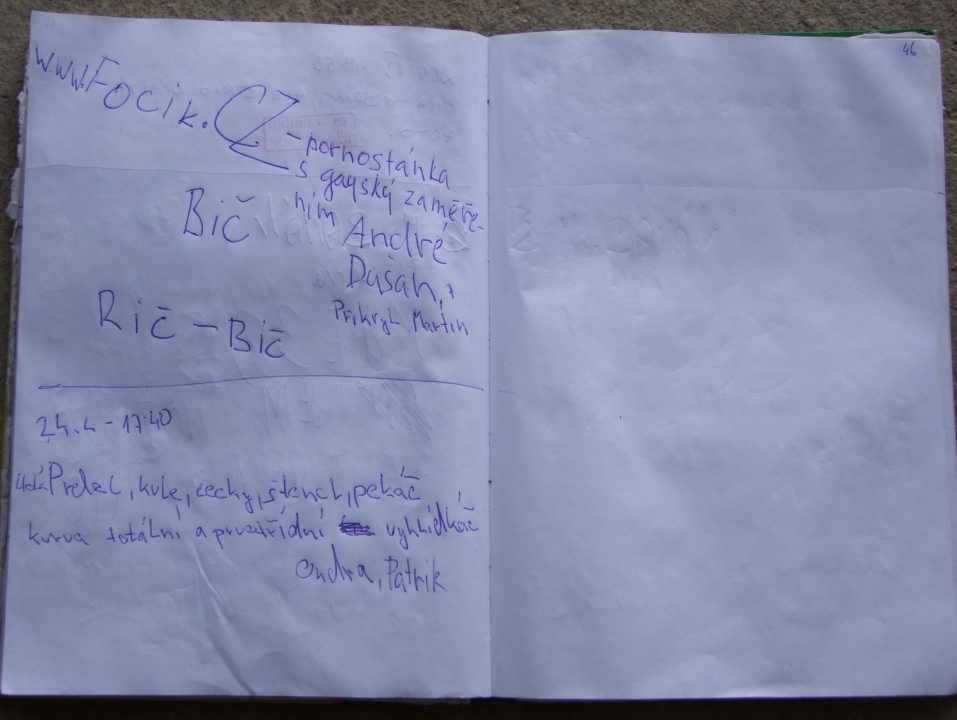 www.Focik.CZ
- pornostánka
s gayský zaměře-
ním
Bič
André
Dušan,
Přikryl Martin
Rič - Bič
24.4 - 17:40
Prdel, kule, cecky, štench, pekáč
kurva totální a prvotřídní vyhlídkáč
Ondra, Patrik
46